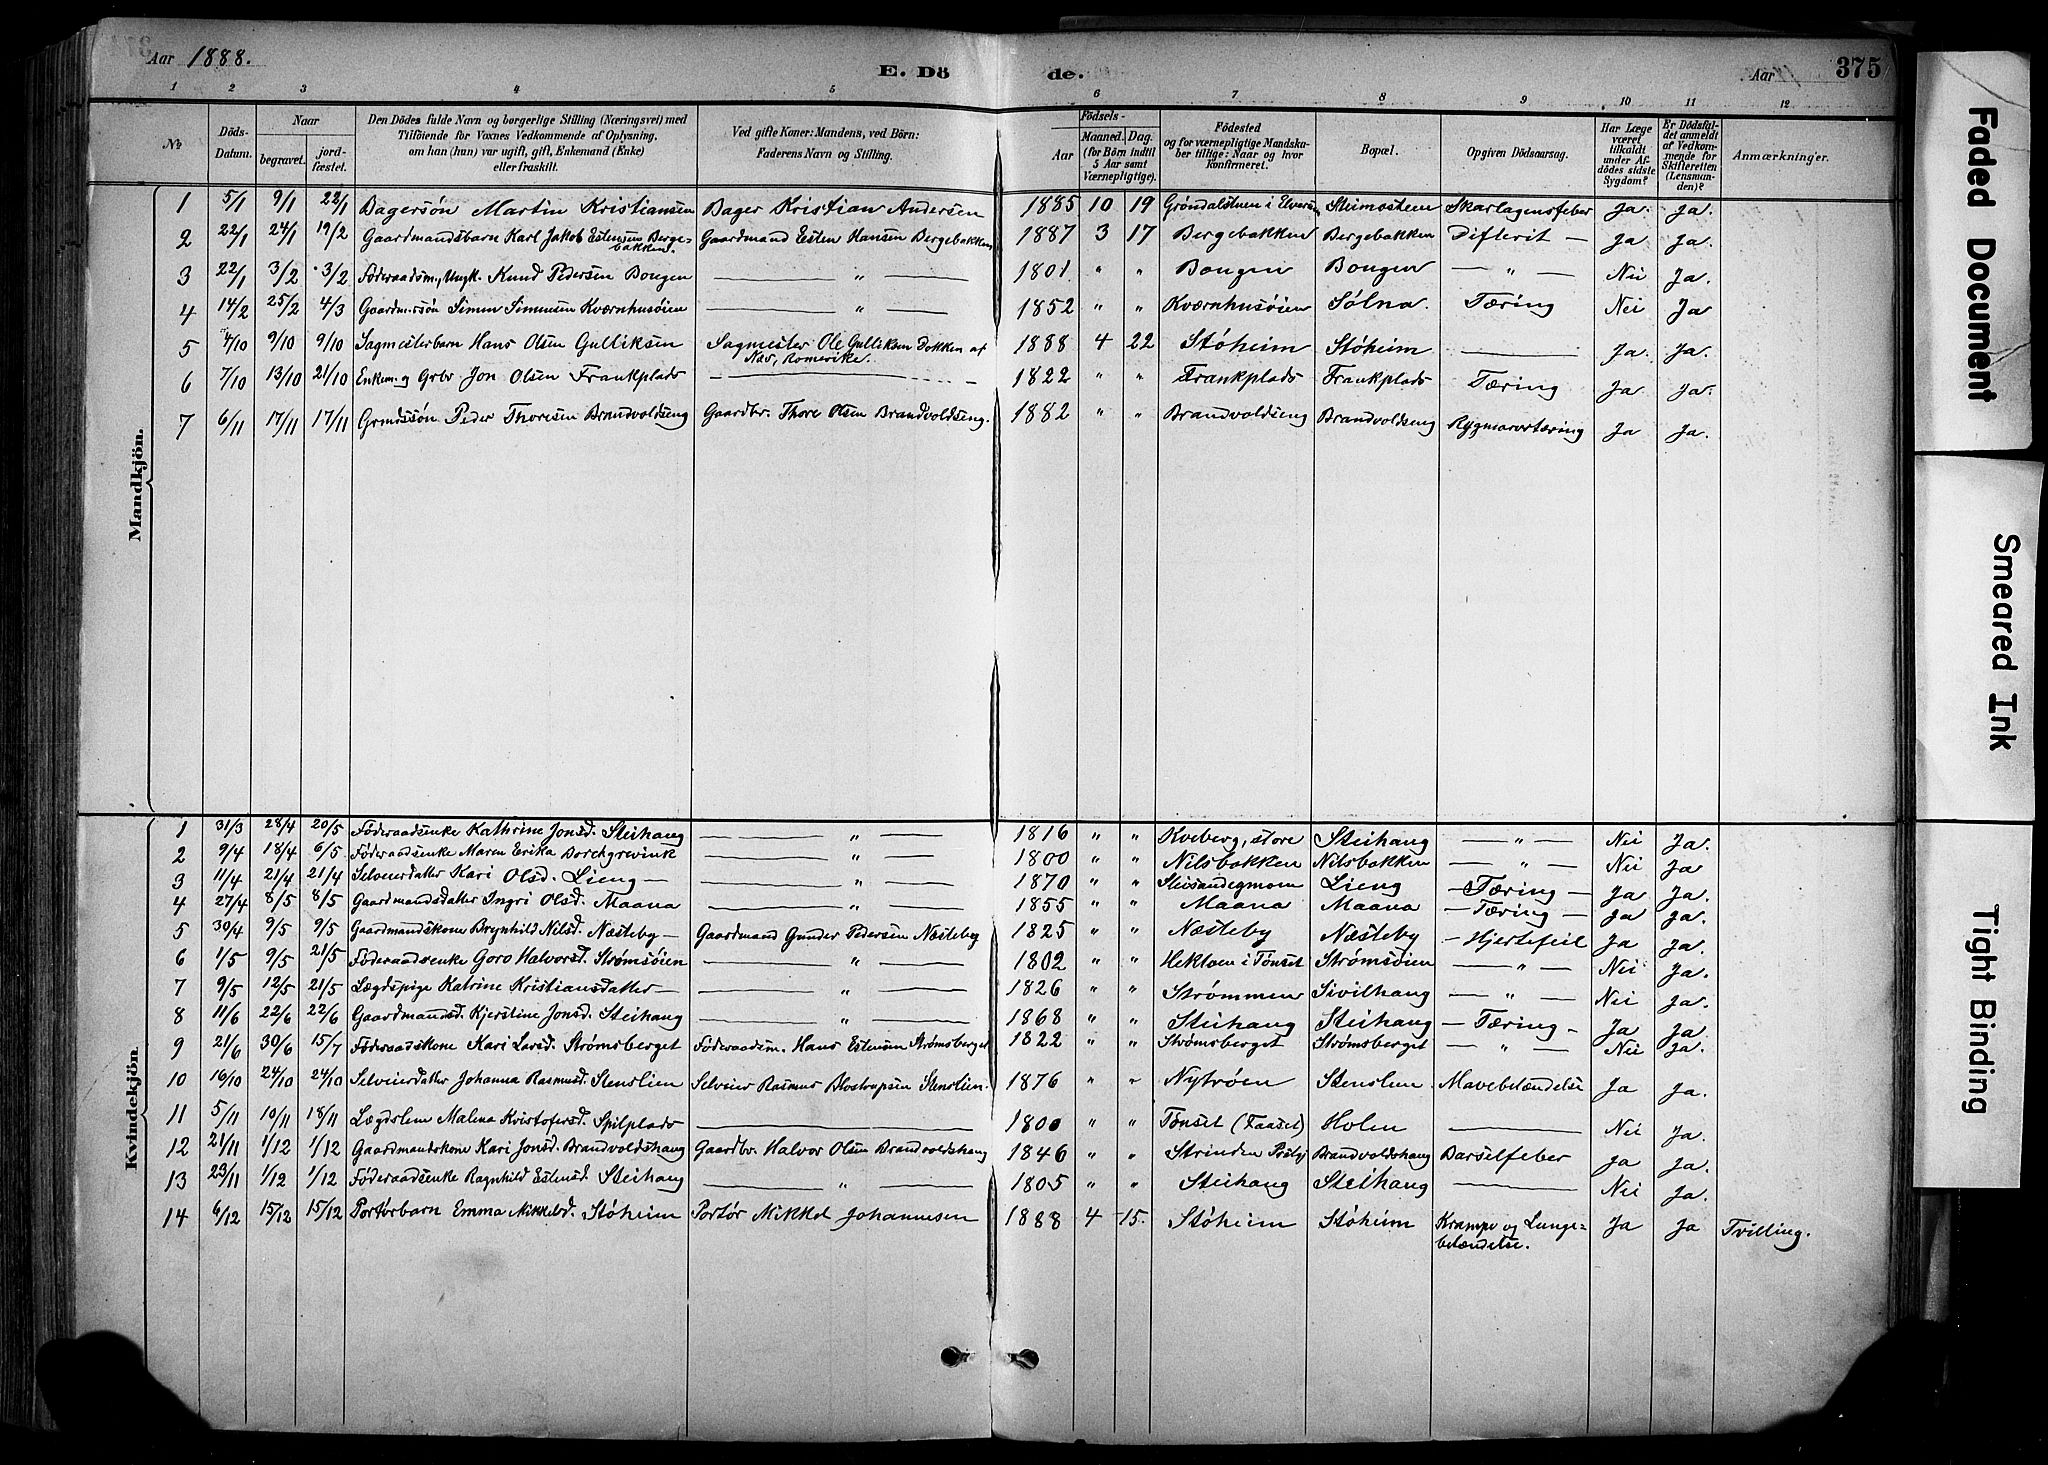 Aar 1888.
E. Dö de.
Aar
375
1 2 3 4 5 6 7 8 9 10 11 12
No
Döds-Datum.
Naar
begravet.
jord-fæstet.
Den Dödes fulde Navn og borgerlige Stilling (Næringsvei) med
Tilföiende for Voxnes Vedkommende af Oplysning,
om han (hun) var ugift, gift, Enkemand (Enke)
eller fraskilt.
Ved gifte Koner: Mandens, ved Börn:
Faderens Navn og Stilling.
Födsels-
Aar
Maaned. Dag.
(for Börn indtil
5 Aar samt
Værnepligtige).
Födested
og for værnepligtige Mandska-
ber tillige: Naar og hvor
konfirmeret.
Bopæl.
Opgiven Dödsaarsag.
Har Læge
været
tilkaldt
under Af-
dödes sidste
Sygdom?
Er Dödsfal-
det anmeldt
af Vedkom-
mende for
Skifteretten
(Lensman-
den)?
Anmærkninger.
Mandkjön.
1 5/1 9/1 22/1 Bagersøn Martin Kristiansen Bager Kristian Andersen 1885 10 19 Grøndalstuen i Elverum Steimosteen Skarlagensfeber Ja. Ja.
2 22/1 24/1 19/2 Gaardmandsbarn Karl Jakob Estensen Berge-
bakken. Gaardmand Esten Hansen Bergebakken 1887 3 17 Bergebakken Bergebakken Difterit — Ja Ja.
3 22/1 3/2 3/2 Föderaadsm., Ungk. Knud Pedersen Bongen — " — 1801. " " Bongen Bongen — " — Nei Ja.
4 14/2 25/2 4/3 Gaardm.søn Simen Simensen Kværnhusøien — " — 1852 " " Kværnhusøien Sølna. Tæring Nei Ja
5 4/10 9/10 9/10 Sagmesterbarn Hans Olsen Gulliksen Sagmester Ole Gulliksen Dokken af
Næs, Romerike. 1888 4 22 Støheim Støheim — Ja. Ja.
6 7/10 13/10 21/10 Enkem. og Grbr Jon Olsen Frankplads — 1822 " " Frankplads Frankplads Tæring Ja Ja.
7 6/11 17/11 17/11 Grmdssøn Peder Thoresen Brandvoldseng Gaardbr. Thore Olsen Brandvoldseng. 1882 " " Brandvoldseng Brandvoldseng Rygmarvstæring Ja Ja.
Kvindekjön.
1 31/3 28/4 20/5 Föderaadsenke Kathrine Jonsd. Steihang — " — 1816 " " Kveberg, store Steihang — " — Nei Ja.
2 9/4 18/4 6/5 Föderaadsenke Maren Erika Borchgrevink — " — 1800 " " Nilsbakken Nilsbakken — " — Nei Ja
3 11/4 21/4 21/4 Selveierdatter Kari Olsd. Lieng — — " — 1870 " " Lieng — Tæring — Ja Ja.
4 27/4 8/5 8/5 Gaardmandsdatter Ingri Olsd. Maana — " — 1855 " " Maana Maana — Tæring — Ja Ja.
5 30/4 9/5 9/5 Gaardmandskone Brynhild Nilsd. Næsteby — Gaardmand Gunder Pedersen Næsteby 1825 " " Næsteby Næsteby — Hjertefeil Ja Ja.
6 1/5 9/5 21/5 Föderaadsenke Goro Halvorsd. Strømsøien — " — 1802 " " Hektoen i Tønset Strømsøien — " — Nei Ja.
7 9/5 12/5 21/5 Lægdspige Katrine Kristiansdatter — — " — 1826 " " Strømmen Sivilhang — " — Nei Ja.
8 11/6 22/6 22/6 Gaardmandsd. Kjerstine Jonsd. Steihang — " — 1868 " " Steihang Steihang — Tæring — Ja Ja.
9 21/6 30/6 15/7 Föderaadskone Kari Larsd. Strømsberget Föderaadsm. Hans Estensen Strømsberget 1822 " " Strømsberget Strømsberget — " — Nei Ja.
10 16/10 24/10 24/10 Selveierdatter Johanna Rasmusd. Stenslien Selveier Rasmus Stenslien. 1876 " " Nytrøen Stenslien Mavebetændelse Ja Ja.
11 5/11 10/11 18/11 Lægdslem Malena Kristofersd. Spilplads — 1800 " " Tønset (Faaset) Holen — Nei Ja.
12 21/11 1/12 1/12 Gaardmandskone Kari Jonsd. Brandvoldshang Gaardbr. Halvor Olsen Brandvoldshang 1846 " " Strinden Brandvoldshang Barselfeber Ja Ja.
13 23/11 1/12 1/12 Föderaadsenke Ragnhild Estensd. Steihang — " — 1805 " " Steihang Steihang — Nei Ja.
14 6/12 15/12 15/12 Portørbarn Emma Mikkelsd. Støheim Portør Mikkel Johannesen 1888 4 15. Støheim Støheim Krampe og Lunge-
betændelse. Ja Ja Tvilling.
Faded Document
Smeared Ink
Tight Binding